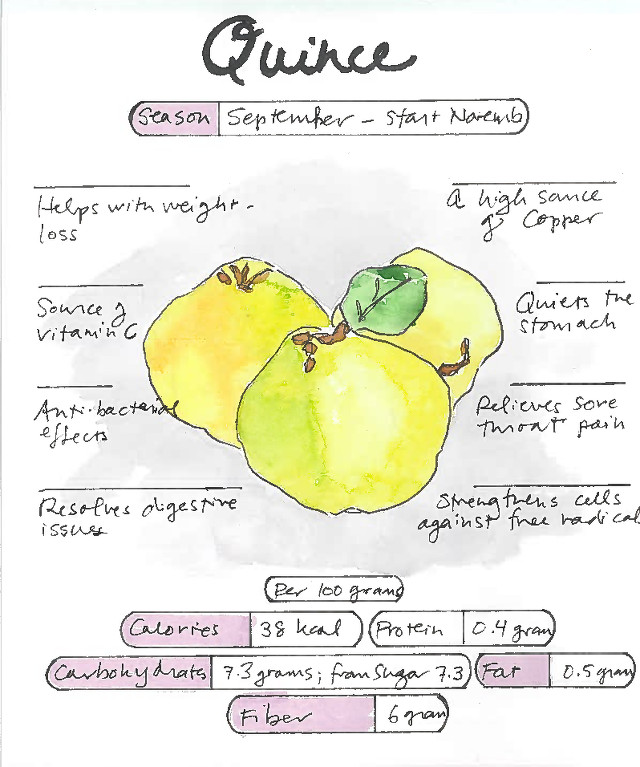 Quince
Season September - start Novemb
Helps with weight-
loss
A high source
of Copper
Source of
vitamin C
Quiets the
stomach
Anti-bacterial
effects
Relieves sore
throat pain
Resolves digestive
issues
Strengthens cells
against free radical
Per 100 grams
Calories 38 kcal Protein 0.4 gram
Carbohydrats 7.3 grams; from sugar 7.3 Fat 0.5 gram
Fiber 6 gram